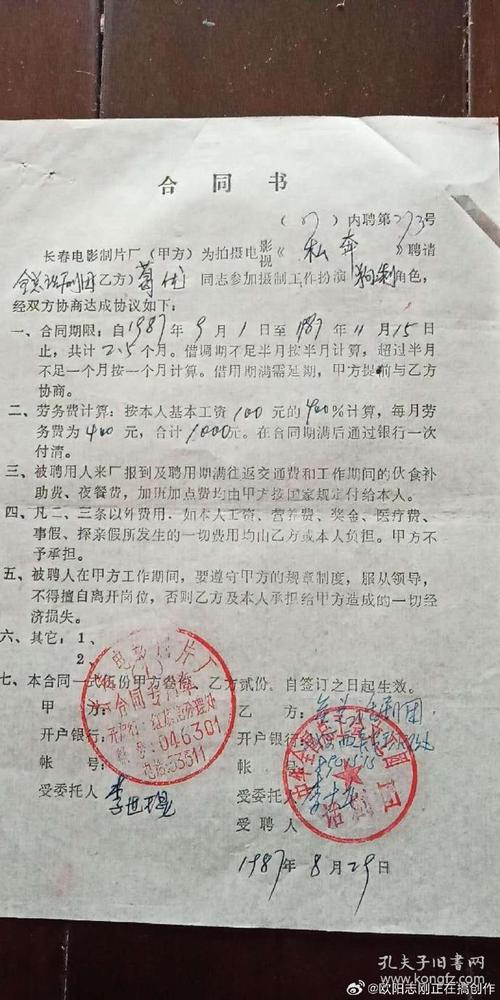 合同书
(87)内聘第273号
长春电影制片厂(甲方)为拍摄电影视《私奔》聘请
全总话剧团(乙方)葛优同志参加摄制工作扮演狗剩角色,
经双方协商达成协议如下:
一、合同期限:自1987年9月1日至1987年11月15日
止,共计2.5个月。借调期不足半月按半月计算,超过半月
不足一个月按一个月计算。借用期满需延期,甲方提前与乙方
协商。
二、劳务费计算:按本人基本工资100元的400%计算,每月劳
务费为400元,合计1000元。在合同期满后通过银行一次
付清。
三、被聘用人来厂报到及聘用期满往返交通费和工作期间的伙食补
助费、夜餐费,加班加点费均由甲方按国家规定付给本人。
四、凡二、三条以外费用,如本人工资、营养费、奖金、医疗费、
事假、探亲假所发生的一切费用均由乙方或本人负担。甲方不
予承担。
五、被聘人在甲方工作期间,要遵守甲方的规章制度,服从领导,
不得擅自离开岗位,否则乙方及本人承担给甲方造成的一切经
济损失。
六、其它:1、
2、
七、本合同一式伍份甲方叁份,乙方贰份,自签订之日起生效。
甲方:
乙方:全总话剧团
开户银行:
开户银行:
帐号:
帐号:
受委托人
李世
受委托人
受聘人
电影制片厂
合同专用章
046301
电话:53311
中华全国总工会
话剧团
1987年8月29日
孔夫子旧书网
@欧阳志刚正在搞创作